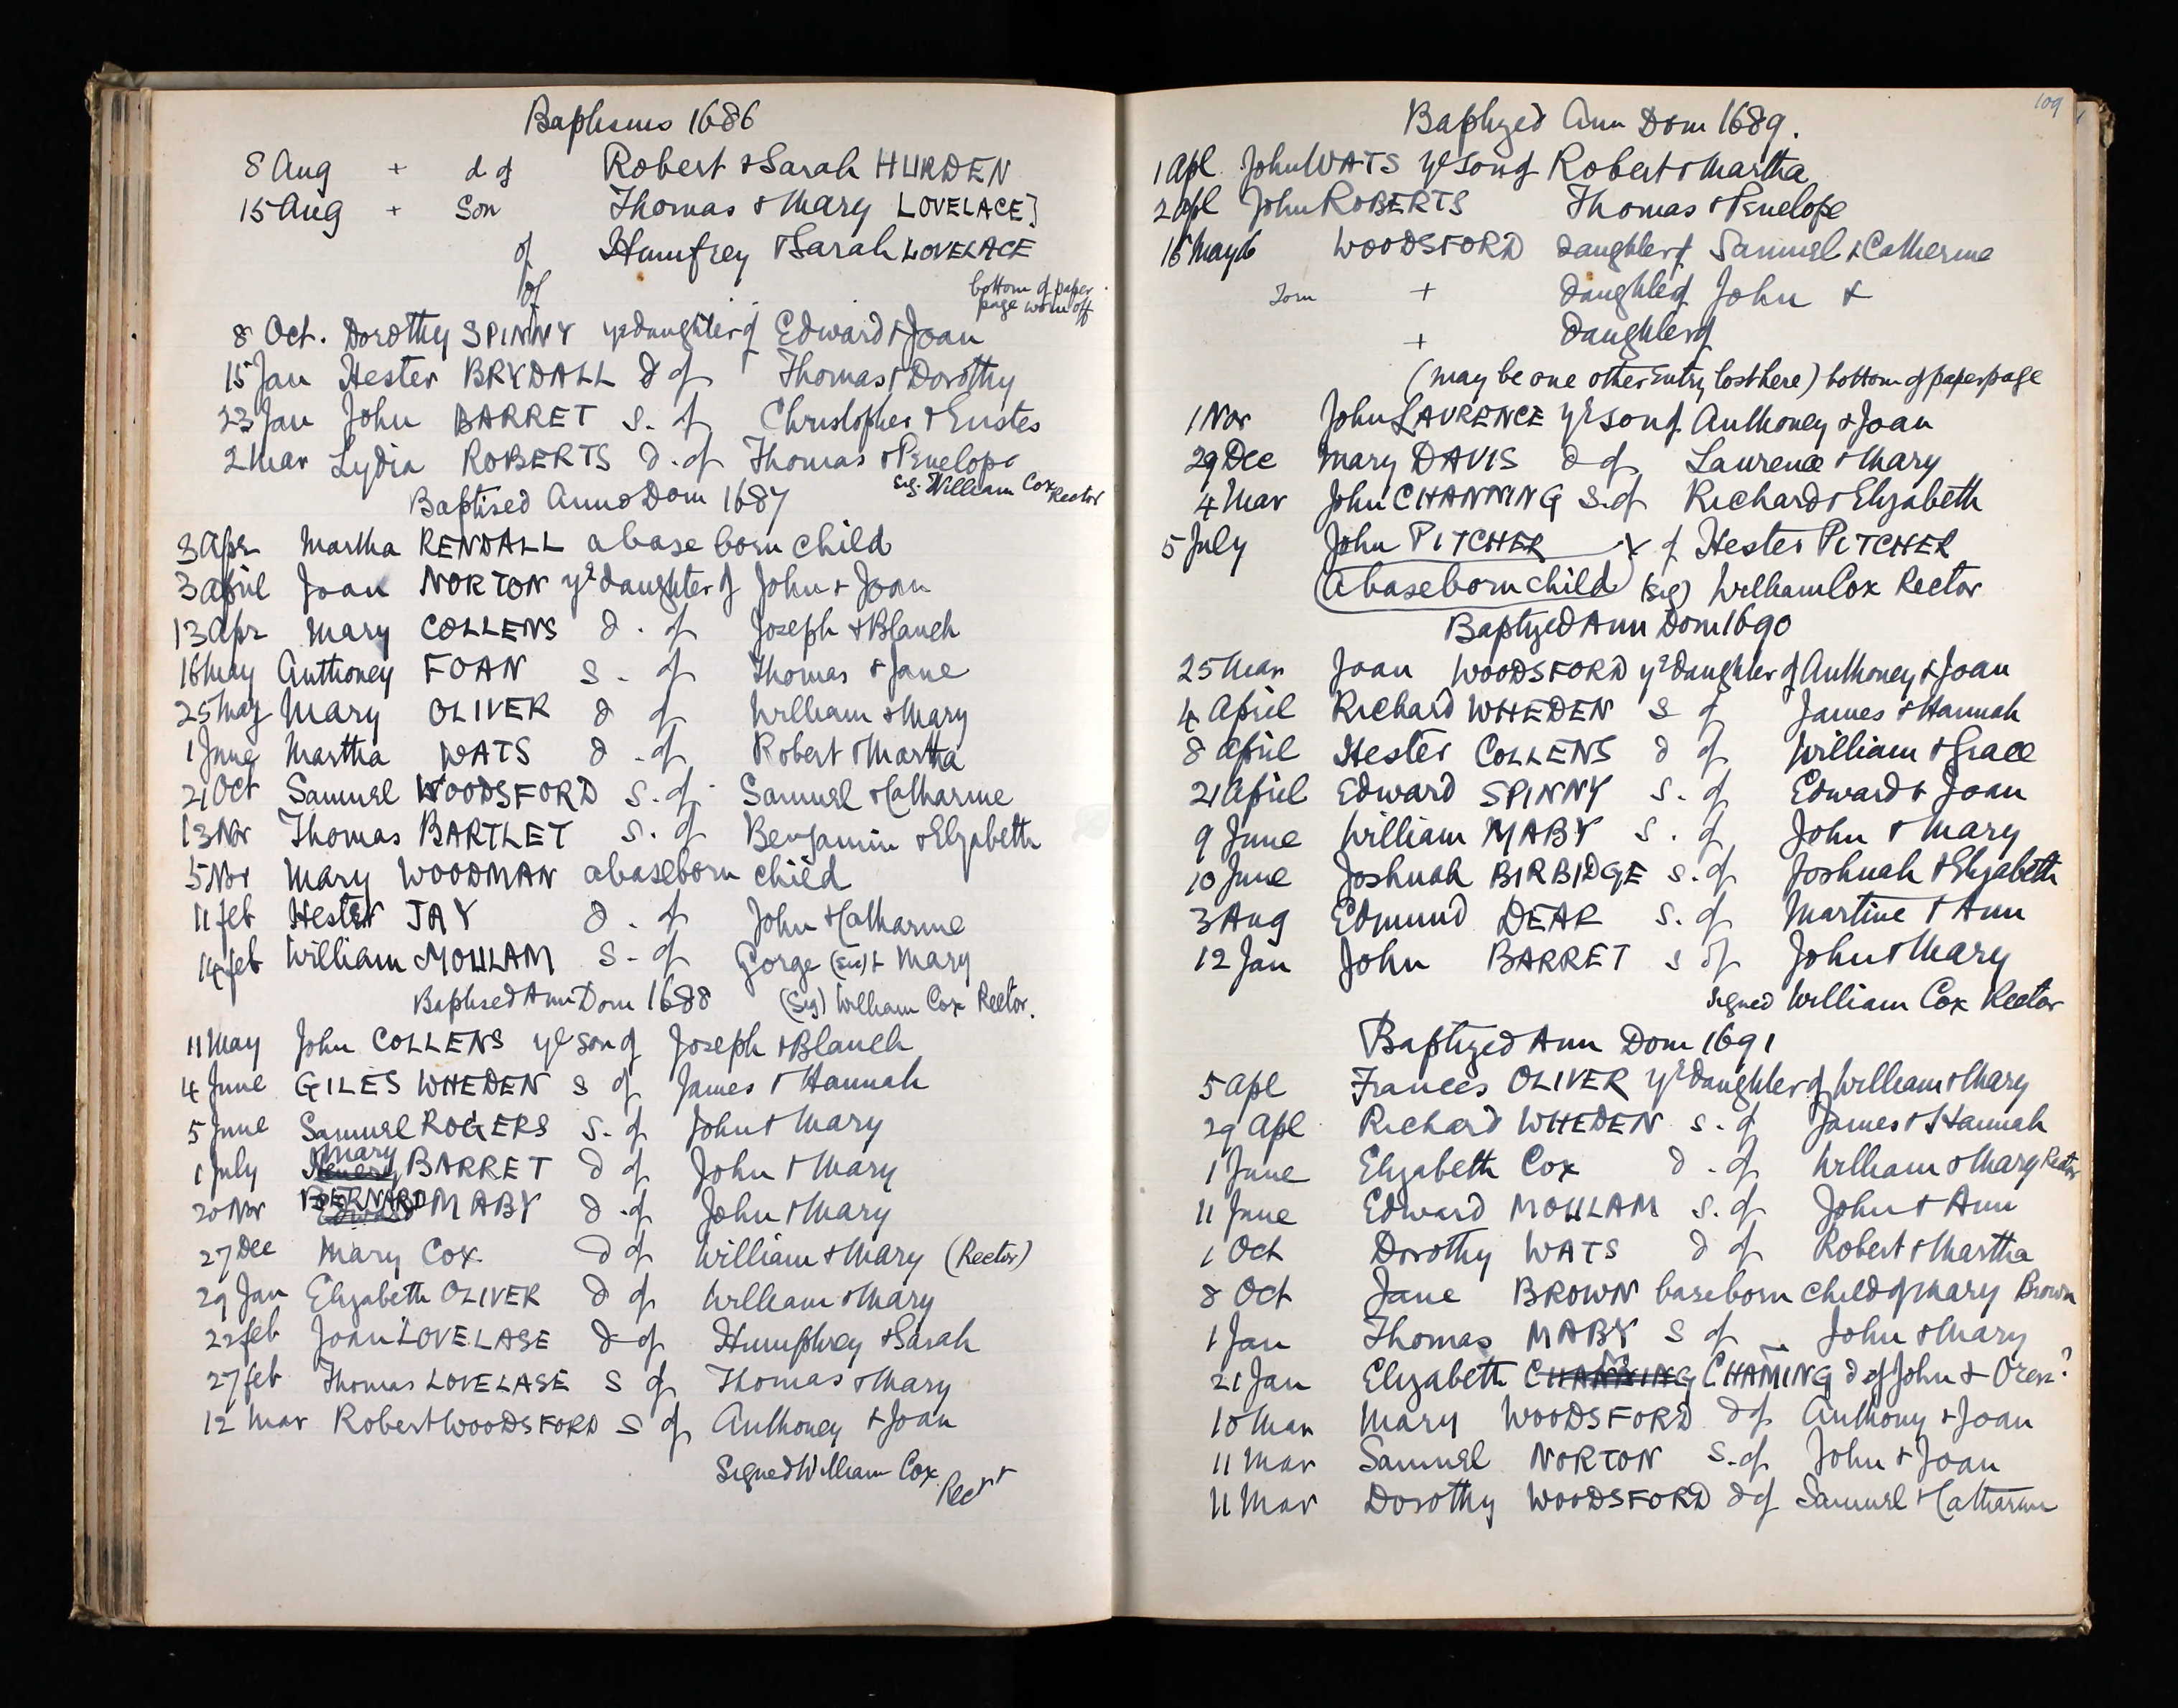 Baptisms 1686
8 Aug + d of Robert & Sarah HURDEN
15 Aug + Son Thomas & Mary LOVELACE]
of Humfrey & Sarah LOVELACE
of bottom of paper
page worn off
8 Oct. Dorothy SPINNY ye daughter of Edward & Joan
15 Jan Hester BRYDALL d of Thomas & Dorothy
23 Jan John BARRET s. of Christopher & Eustes
2 Mar Lydia ROBERTS d. of Thomas & Penelope
sig. William Cox Rector
Baptised Anno Dom 1687
3 Apr Martha RENDALL a base born child
3 April Joan NORTON ye daughter of John & Joan
13 Apr Mary COLLENS d. of Joseph & Blanch
16 May Anthoney FOAN s. of Thomas & Jane
25 May Mary OLIVER d of William & Mary
1 June Martha WATS d. of Robert & Martha
21 Oct Samuel WOODSFORD s. of Samuel & Catharine
13 Nov Thomas BARTLET s. of Benjamin & Elizabeth
5 Nov Mary WOODMAN a baseborn child
11 feb Hester JAY d. of John & Catharine
14 feb William MOULLAM s. of Gorge (sic) & Mary
Baptised Ann Dom 1688 (Sig) William Cox Rector.
11 May John COLLENS ye son of Joseph & Blanch
4 June GILES WHEDEN s of James & Hannah
5 June Samuel ROGERS s. of John & Mary
1 July Mary BARRET d of John & Mary
20 Nov BERNARD MABY d. of John & Mary
27 Dec Mary Cox d of William & Mary (Rector)
29 Jan Elizabeth OLIVER d of William & Mary
22 feb Joan LOVELASE d of Humphrey & Sarah
27 feb Thomas LOVELASE s of Thomas & Mary
12 Mar Robert WOODSFORD s of Anthoney & Joan
Signed William Cox
Rectr
109
Baptyzed Ann Dom 1689.
1 Apl John WATS ye son of Robert & Martha
2 Apl John ROBERTS Thomas & Penelope
16 May WOODSFORD daughter of Samuel & Catherine
Torn + daughter of John &
+ daughter of
(may be one other entry lost here) bottom of paper page
1 Nov John LAVRENCE ye son of Anthoney & Joan
29 Dec Mary DAVIS d of Laurence & Mary
4 Mar John CHANNING s. of Richard & Elizabeth
5 July John PITCHER of Hester PITCHER
a baseborn child (sig) William Cox Rector
Baptyzed Ann Dom 1690
25 Mar Joan WOODSFORD ye daughter of Anthoney & Joan
4 April Richard WHEDEN s of James & Hannah
8 April Hester COLLENS d of William & Grace
21 April Edward SPINNY s. of Edward & Joan
9 June William MABY s. of John & Mary
10 June Joshuah BIRBIDGE s. of Joshuah & Elizabeth
3 Aug Edmund DEAR s. of Martine & Ann
12 Jan John BARRET s of John & Mary
signed William Cox Rector
Baptyzed Ann Dom 1691
5 Apl Frances OLIVER ye daughter of William & Mary
29 Apl Richard WHEDEN s. of James & Hannah
1 June Elyzabeth Cox d. of William & Mary Rector
11 June Edward MOULLAM s. of John & Ann
1 Oct Dorothy WATS d of Robert & Martha
8 Oct Jane BROWN baseborn child of Mary Brown
1 Jan Thomas MABY s of John & Mary
21 Jan Elyzabeth CHANNING CHAMING d of John & Oren?
10 Mar Mary WOODSFORD d of Anthony & Joan
11 Mar Samuel NORTON s. of John & Joan
11 Mar Dorothy WOODSFORD d of Samuel & Catharin